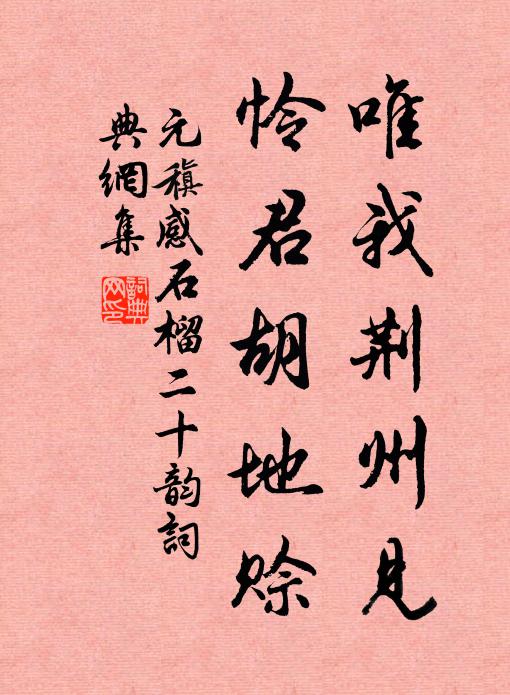 唯我荆州見
怜君胡地赊
元稹感石榴二十韵詞
典網集
詞典網印